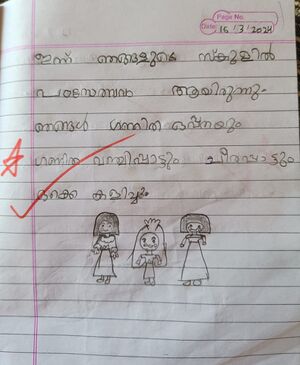 Page No.
Date: 16/3/2024
ഇന്ന് ഞങ്ങളുടെ സ്കൂളിൽ
പഠനോത്സവം ആയിരുന്നു.
ഞങ്ങൾ ഗണിത ഒപ്പനയും
ഗണിത വഞ്ചിപ്പാട്ടും
ഒക്കെ കളിച്ചു